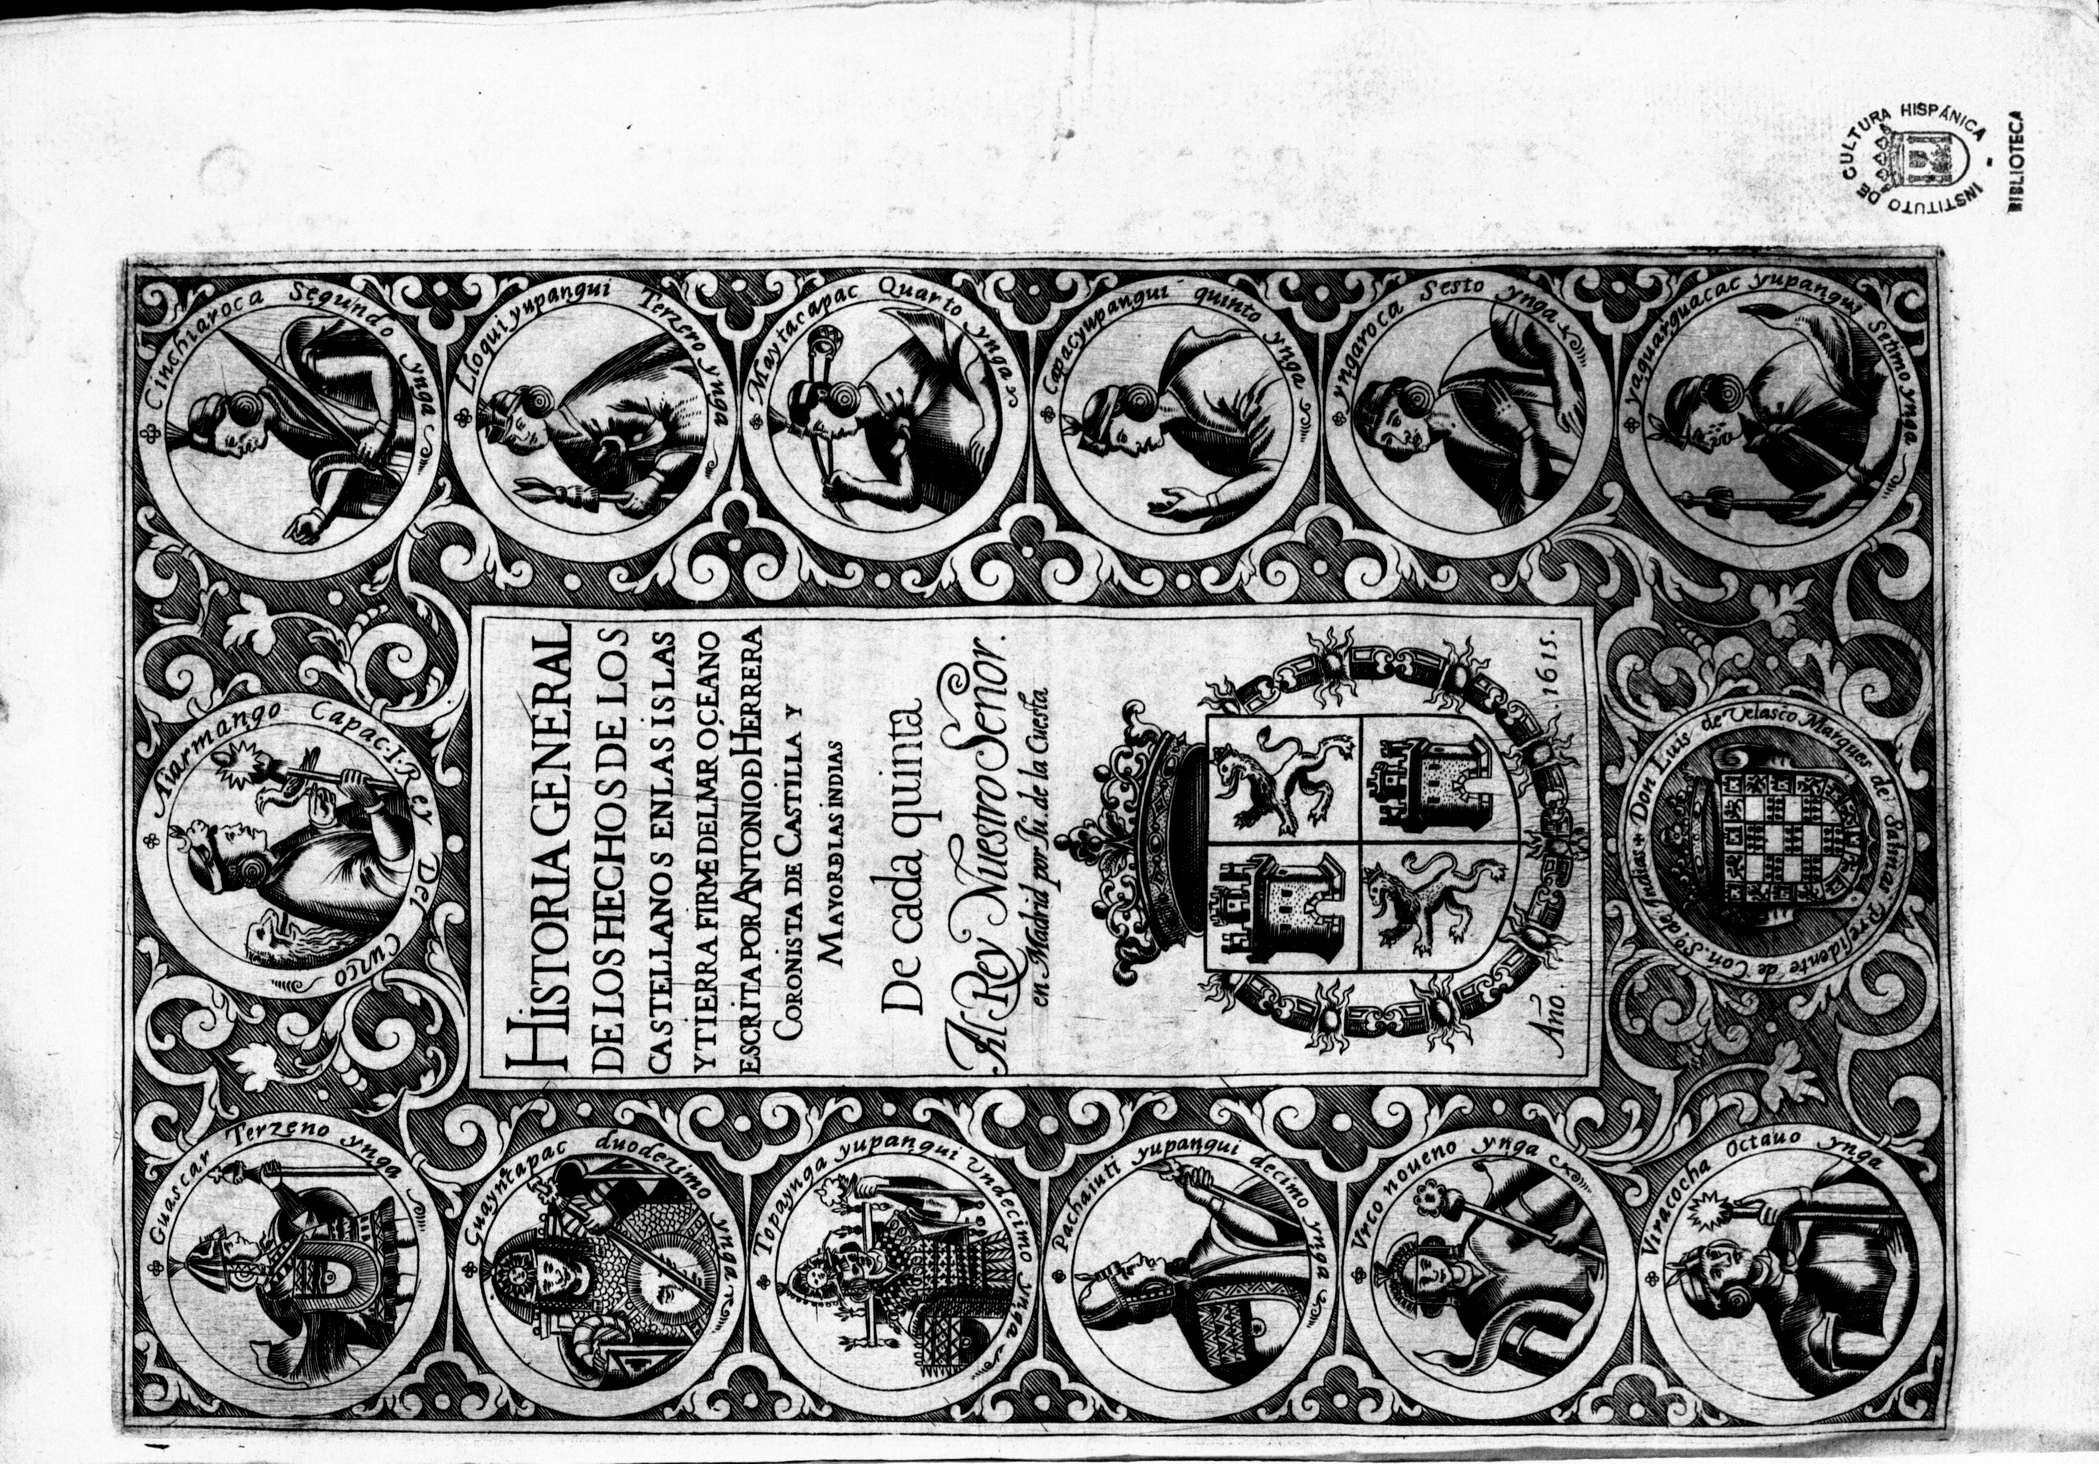 HISTORIA GENERAL
DE LOS HECHOS DE LOS
CASTELLANOS EN LAS ISLAS
Y TIERRA FIRME DEL MAR OCEANO
ESCRITA POR ANTONIO D HERRERA
CORONISTA DE CASTILLA Y
MAYOR D LAS INDIAS
De cada quinta
Al Rey Nuestro Señor.
en Madrid por Ju. de la Cuesta
Año. .1615.
Aiarmango Capac.I.Rey Del Cuzco
Cinchiaroca Segundo ynga
Lloquiyupangui Terzero ynga
Maytacapac Quarto ynga
Capacyupangui quinto ynga
yngaroca Sesto ynga
yaguarguacac yupangui Setimo ynga
Viracocha Octauo ynga
Vrco noueno ynga
Pachaiuti yupangui decimo ynga
Topaynga yupangui Vndecimo ynga
Guayntapac duodezimo ynga
Guascar Terzeno ynga
Don Luis de Velasco Marques de Salinas Presidente de Con.So. de Indias
INSTITUTO DE CULTURA HISPÁNICA
BIBLIOTECA